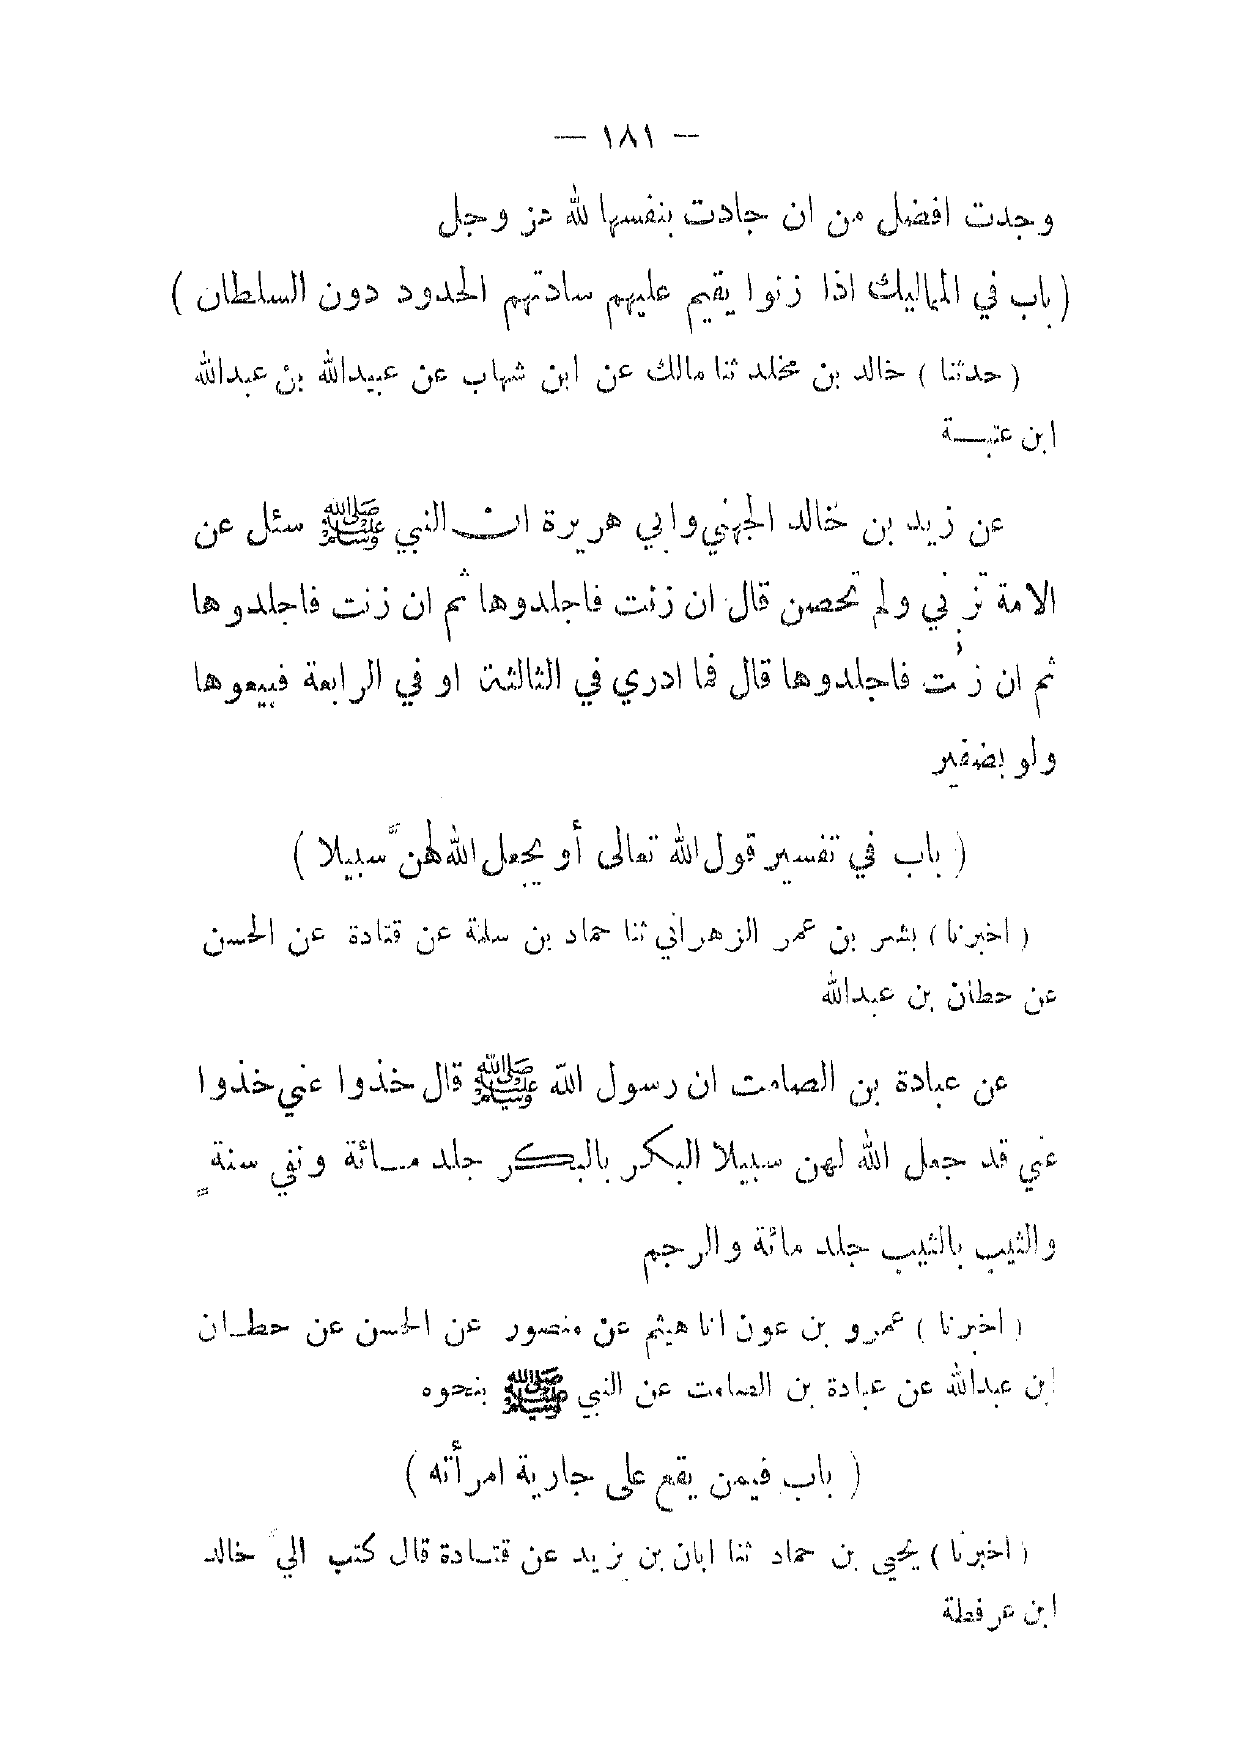 — ١٨١ —
وجدت افضل من ان جادت بنفسها لله عز وجل
( باب في المماليك اذا زنوا يقيم عليهم سادتهم الحدود دون السلطان )
( حدثنا ) خالد بن مخلد ثنا مالك عن ابن شهاب عن عبيدالله بن عبدالله
ابن عتبـــة
عن زيد بن خالد الجهني وابي هريرة ان النبي ﷺ سئل عن
الامة تزني ولم تحصن قال ان زنت فاجلدوها ثم ان زنت فاجلدوها
ثم ان زنت فاجلدوها قال فما ادري في الثالثة او في الرابعة فبيعوها
ولو بضفير
( باب في تفسير قول الله تعالى أو يجعل الله لهنّ سبيلا )
( اخبرنا ) بشر بن عمر الزهراني ثنا حماد بن سلمة عن قتادة عن الحسن
عن حطان بن عبدالله
عن عبادة بن الصامت ان رسول الله ﷺ قال خذوا عني خذوا
عني قد جعل الله لهن سبيلا البكر بالبكر جلد مـائة ونفي سنة
والثيب بالثيب جلد مائة والرجم
( اخبرنا ) عمرو بن عون انا هيثم عن منصور عن الحسن عن حطـان
ابن عبدالله عن عبادة بن الصامت عن النبي ﷺ بنحوه
( باب فيمن يقع على جارية امرأته )
( اخبرنا ) يحيى بن حماد ثنا ابان بن يزيد عن قتـادة قال كتب الي خالد
ابن عرفطة